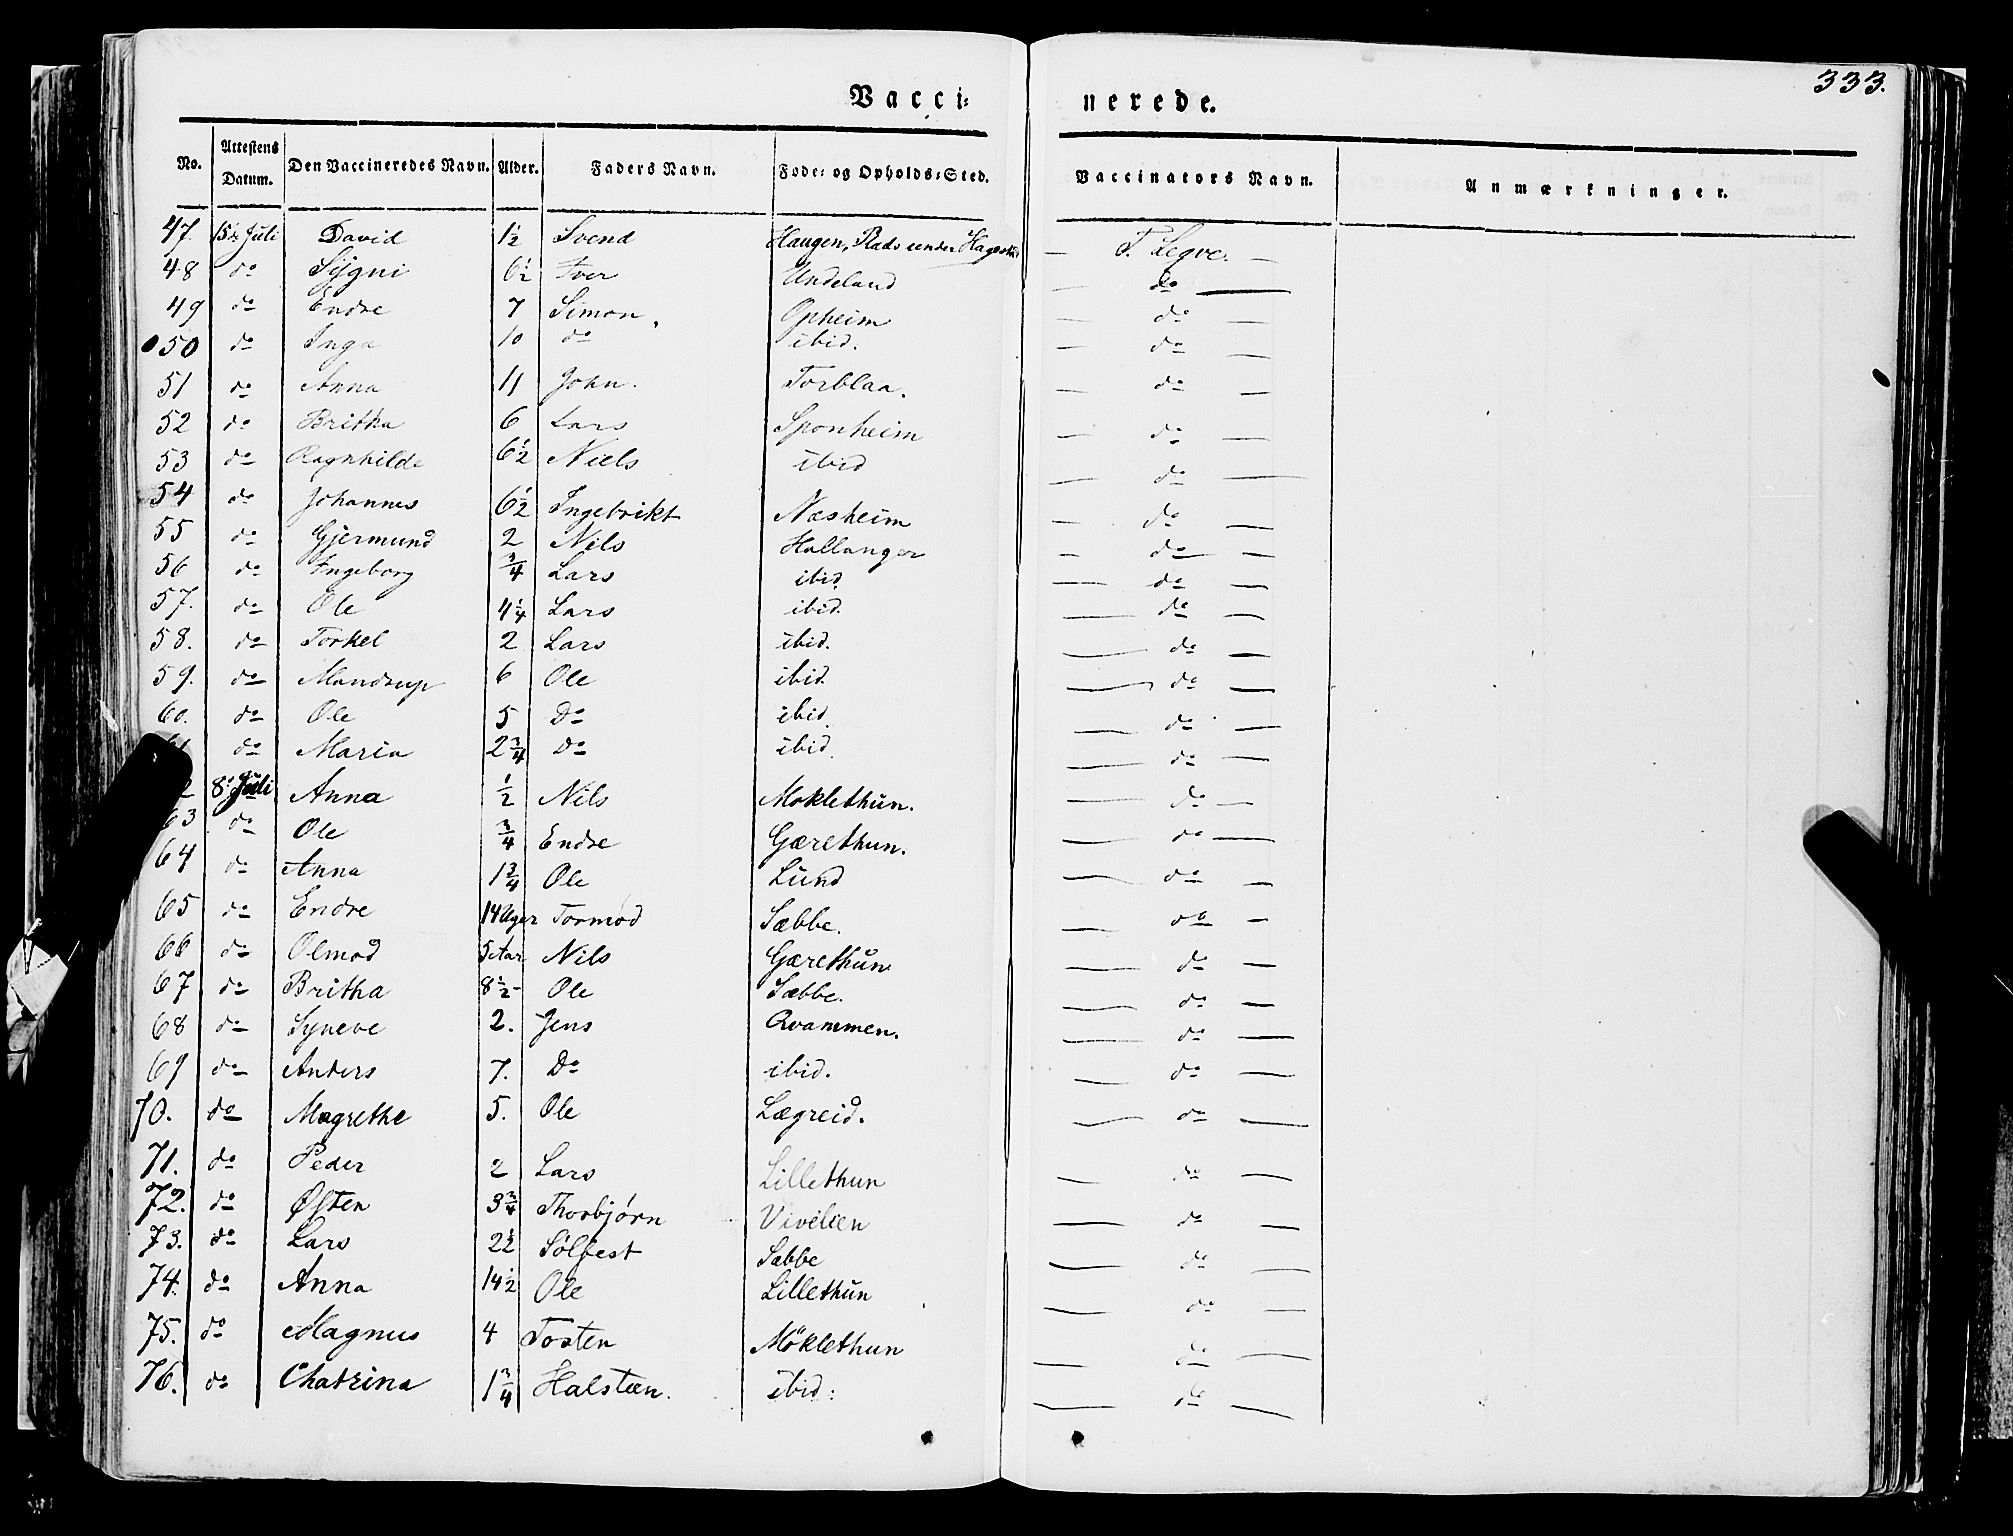 333.
Vacci= nerede.
No. Attestens Datum. Den Vaccineredes Navn. Alder. Faders Navn. Føde= og Opholds=Sted. Vaccinators Navn. Anmærkninger.
47. 15de Juli David 1½ Svend Haugen, Plads under — T. Legve. —
48 do Sygni 6½ Iver Undeland — do —
49 do Endre 7 Simon. Opheim — do —
50 do Inga 10 do ibid. — do —
51 do Anna 11 John. Torblaa. — do —
52 do Britha 6 Lars Sponheim — do —
53 do Ragnhilde 6½ Niels ibid — do —
54 do Johannes 6½ Ingebrikt Næsheim — do —
55 do Gjermund 2 Nils Hallanger — do —
56 do Ingeborg ¾ Lars ibid — do —
57. do Ole 4¼ Lars ibid. — do —
58. do Torkel 2 Lars ibid. — do —
59. do Mandrup 6 Ole ibid. — do —
60. do Ole 5 Do ibid. — do —
61 do Maria 2¾ Do ibid. — do —
2 8de Juli Anna ½ Nils Moklethun. — do —
63 do Ole ¾ Endre Gærethun. — do —
64 do Anna 1¾ Ole Lund — do —
65 do Endre 14 Uger Tormod Sæbbe. — do —
66 do Olmod 5 Aar Nils Gærethun — do —
67 do Britha 8½ - Ole Sæbbe. — do —
68 do Syneve 2. Jens Qvammen. — do —
69 do Anders 7. Do ibid. — do —
70. do Magrethe 5. Ole Lægreid. — do —
71. do Peder 2 Lars Lillethun — do —
72. do Østen 3¾ Thorbjørn Vivelien — do —
73. do Lars 2½ Sölfest Sæbbe — do —
74. do Anna 14½ Ole Lillethun — do —
75. do Magnus 4 Tosten Möklethun — do —
76. do Chatrina 1¾ Halsteen. ibid: — do —